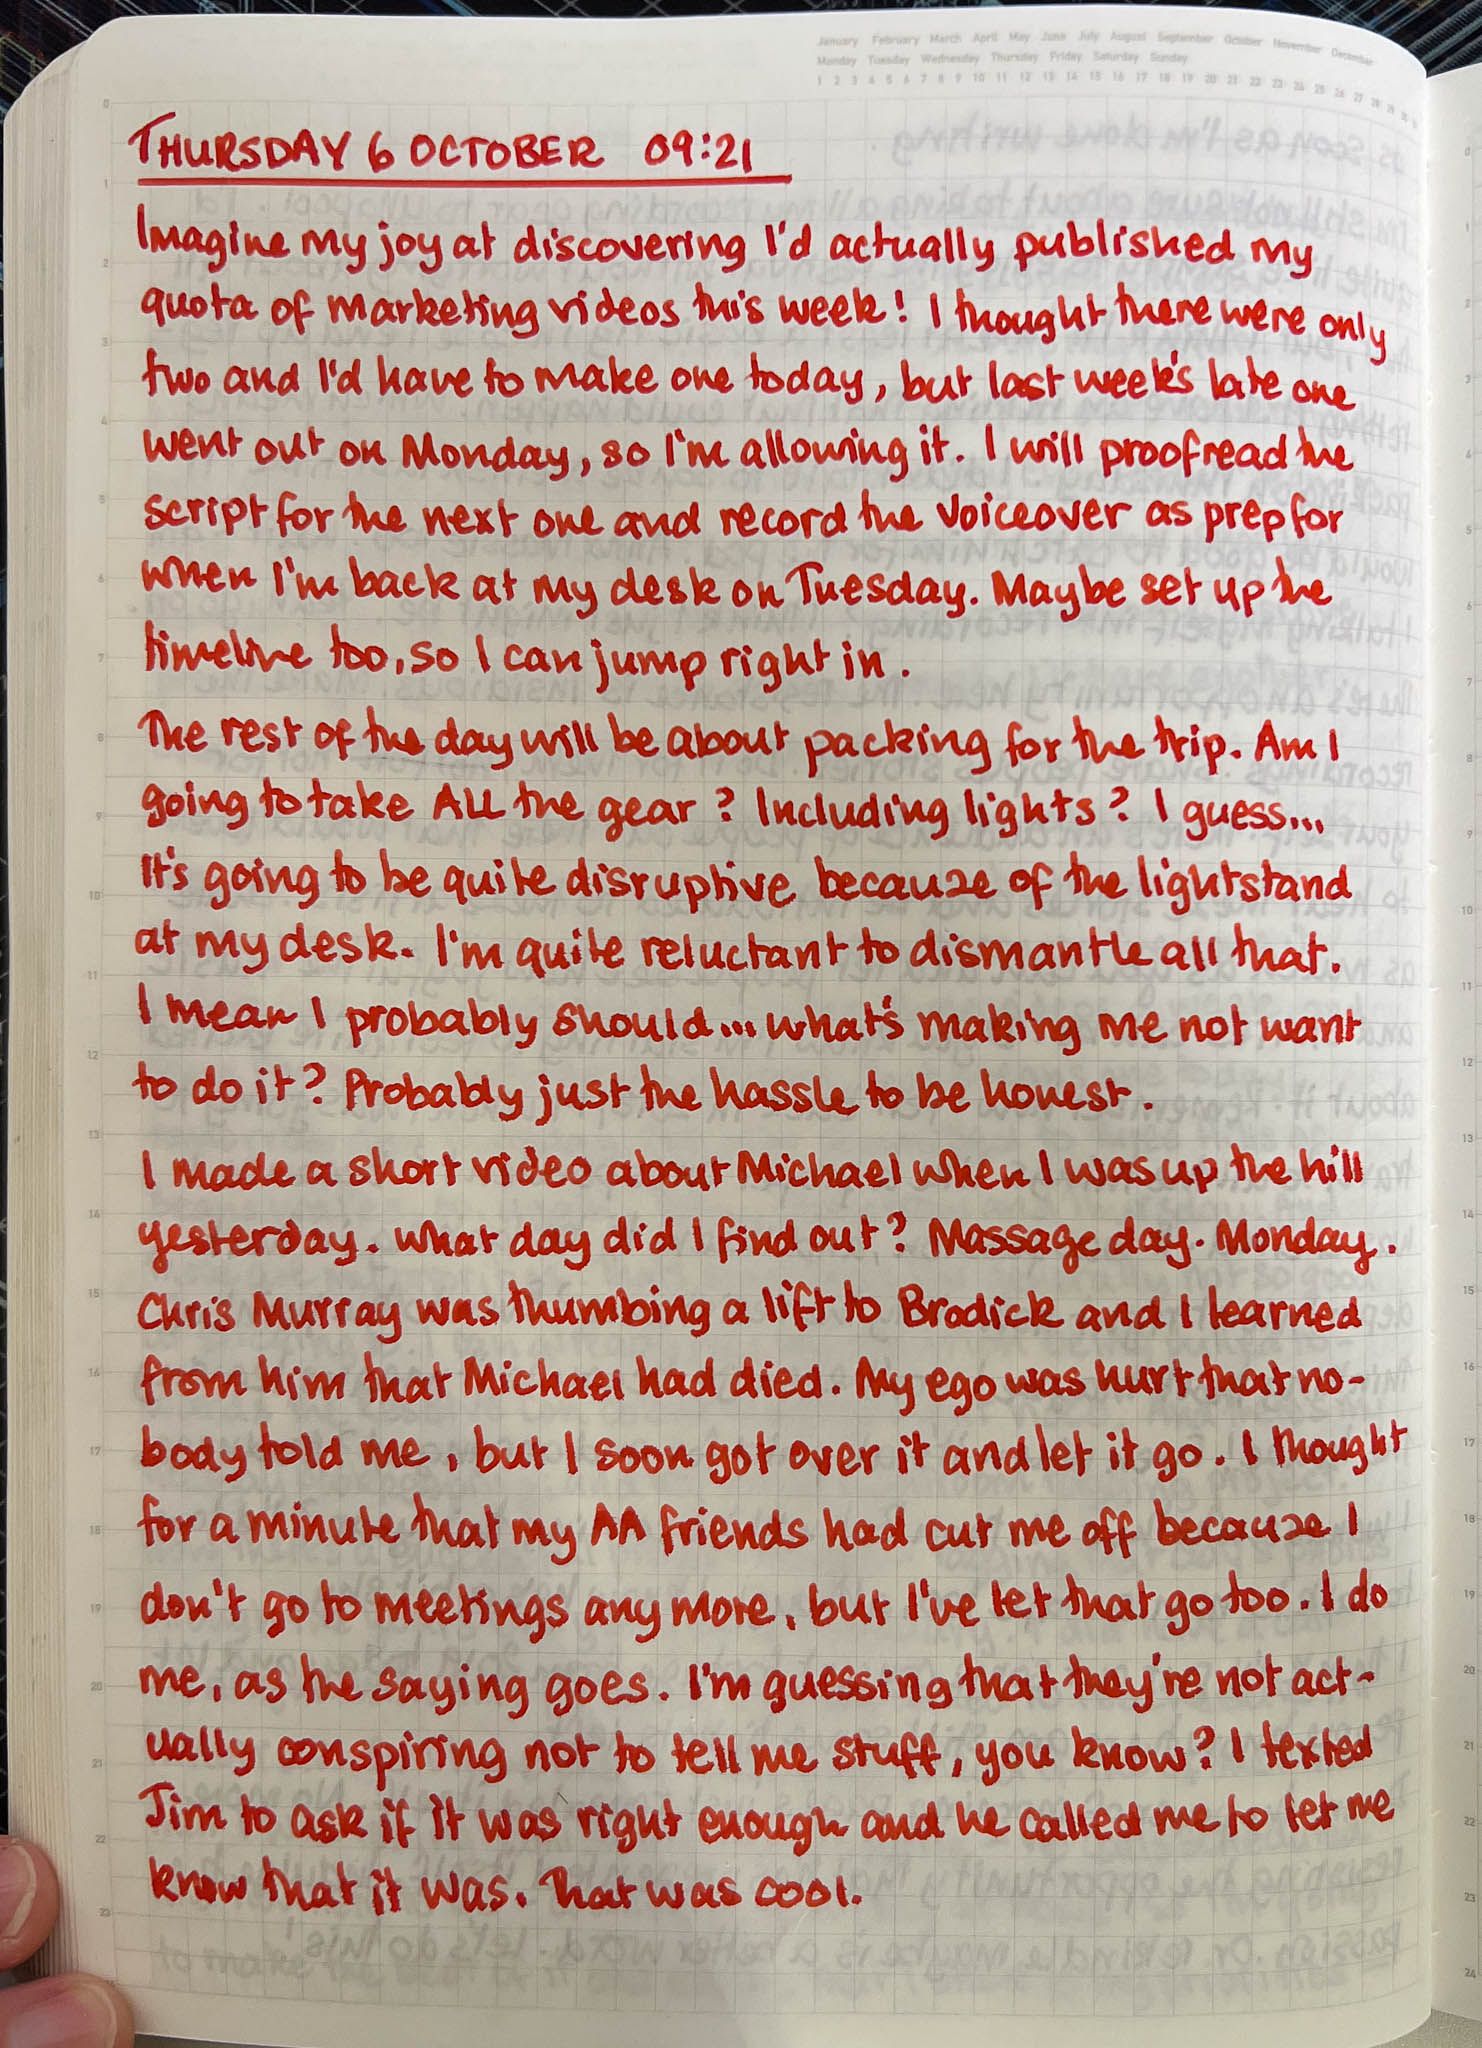 January February March April May June July August September October November December
Monday Tuesday Wednesday Thursday Friday Saturday Sunday
1 2 3 4 5 6 7 8 9 10 11 12 13 14 15 16 17 18 19 20 21 22 23 24 25 26 27 28 29 30 31
THURSDAY 6 OCTOBER 09:21
Imagine my joy at discovering I'd actually published my
quota of marketing videos this week! I thought there were only
two and I'd have to make one today, but last week's late one
went out on Monday, so I'm allowing it. I will proofread the
script for the next one and record the voiceover as prep for
when I'm back at my desk on Tuesday. Maybe set up the
timeline too, so I can jump right in.
The rest of the day will be about packing for the trip. Am I
going to take ALL the gear? Including lights? I guess...
It's going to be quite disruptive because of the lightstand
at my desk. I'm quite reluctant to dismantle all that.
I mean I probably should... what's making me not want
to do it? Probably just the hassle to be honest.
I made a short video about Michael when I was up the hill
yesterday. What day did I find out? Massage day. Monday.
Chris Murray was thumbing a lift to Brodick and I learned
from him that Michael had died. My ego was hurt that no-
body told me, but I soon got over it and let it go. I thought
for a minute that my AA friends had cut me off because I
don't go to meetings any more, but I've let that go too. I do
me, as the saying goes. I'm guessing that they're not act-
ually conspiring not to tell me stuff, you know? I texted
Jim to ask if it was right enough and he called me to let me
know that it was. That was cool.